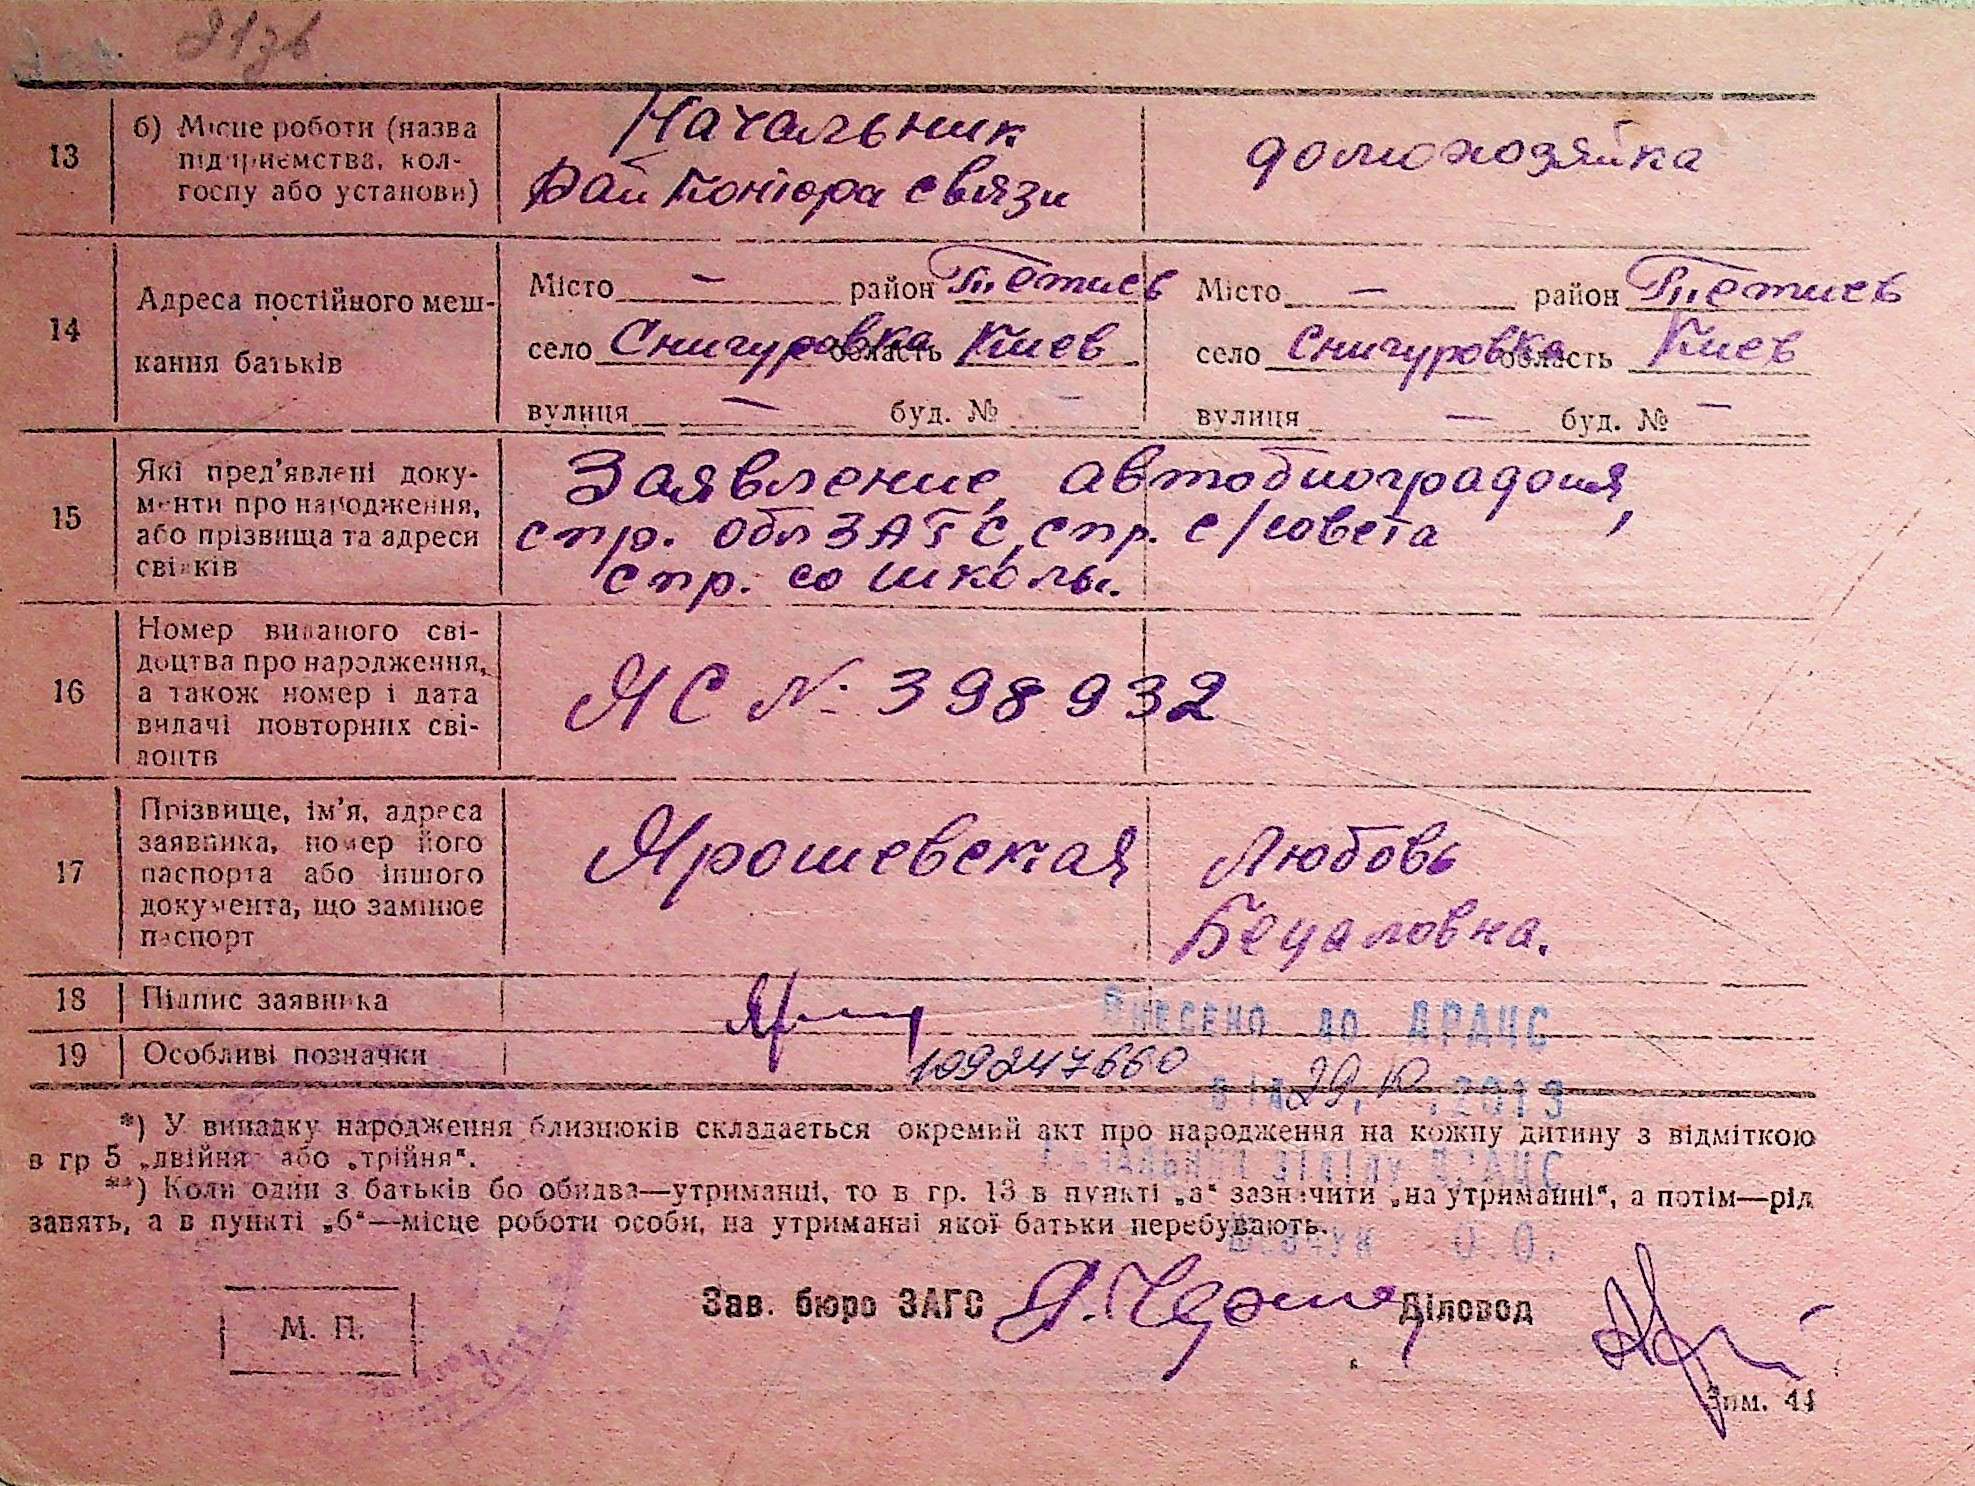 21зв
13
б) Місце роботи (назва
підприємства, кол-
госпу або установи)
Начальник
Рай Контора связи
домохозяйка
14
Адреса постійного меш-
кання батьків
Місто — район Тетиев
село Снигуровка область Киев
вулиця — буд. № —
Місто — район Тетиев
село Снигуровка область Киев
вулиця — буд. № —
15
Які пред'явлені доку-
менти про народження,
або прізвища та адреси
свідків
Заявление, автобиография,
спр. обл ЗАГС, спр. с/совета
спр. со школы.
16
Номер виданого сві-
доцтва про народження,
а також номер і дата
видачі повторних сві-
доцтв
ЯС № 398932
17
Прізвище, ім'я, адреса
заявника, номер його
паспорта або іншого
документа, що замінює
паспорт
Ярошевская Любовь
Бецаловна.
18
Підпис заявника
Внесено до ДРАЦС
19
Особливі позначки
109247660
від 29.10.2013
*) У випадку народження близнюків складається окремий акт про народження на кожну дитину з відміткою
в гр 5 „двійня“ або „трійня“.
Начальник відділу ДРАЦС
**) Коли один з батьків бо обидва—утриманці, то в гр. 13 в пункті „а“ зазначити „на утриманні“, а потім—рід
занять, а в пункті „б“—місце роботи особи, на утриманні якої батьки перебувають.
О.О.
М. П.
Зав. бюро ЗАГС
Діловод
Зим. 44